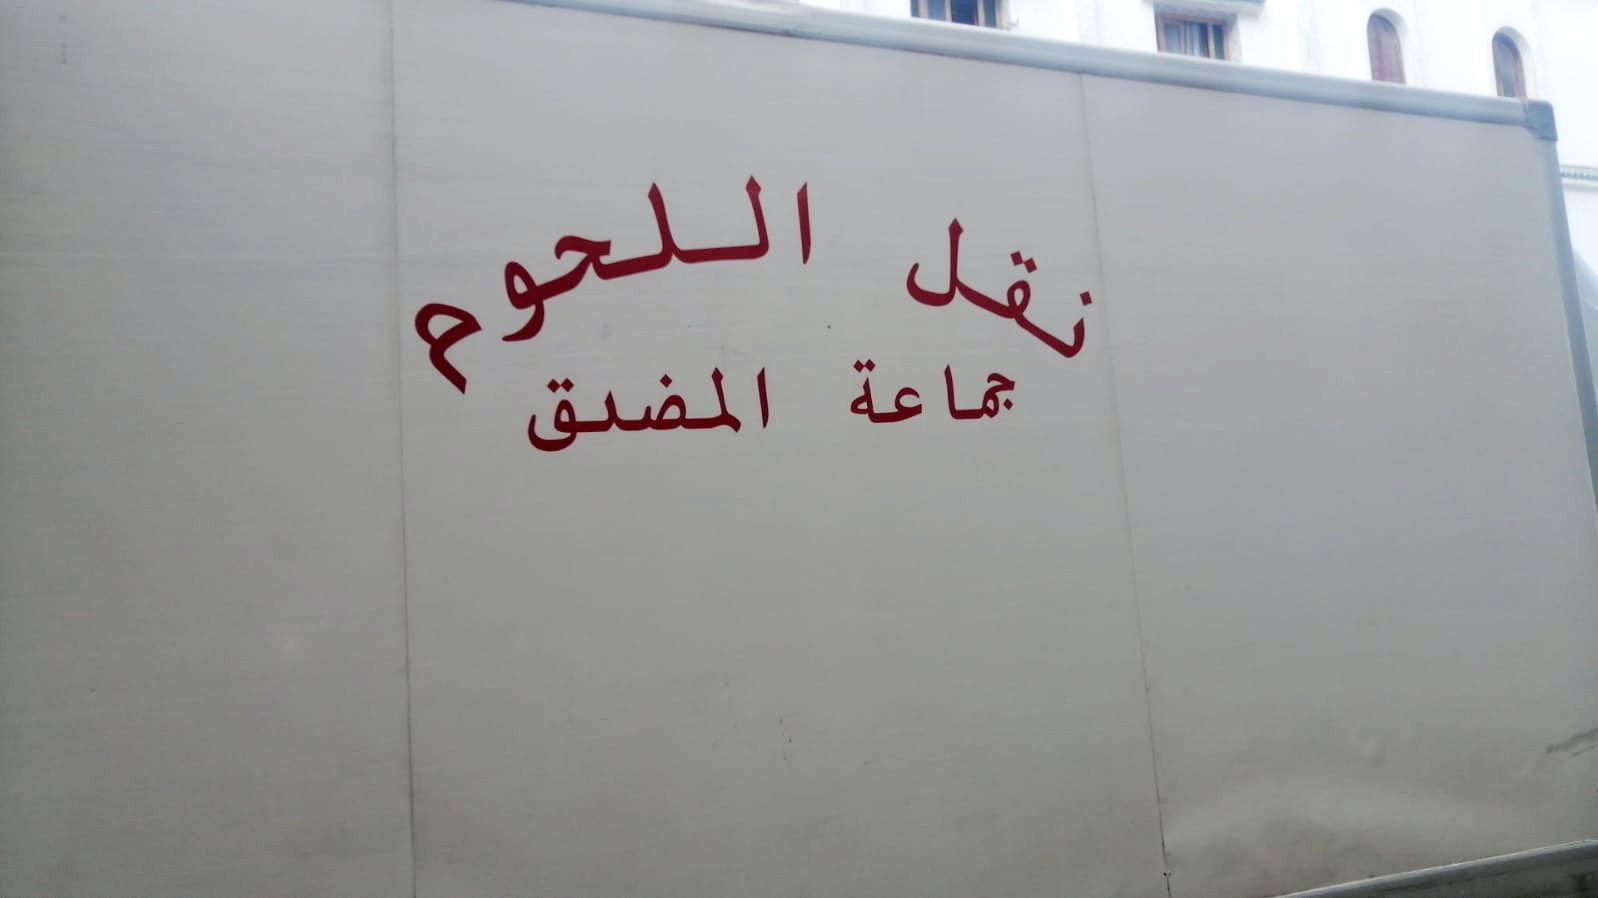 نقل اللحوم
جماعة المضيق